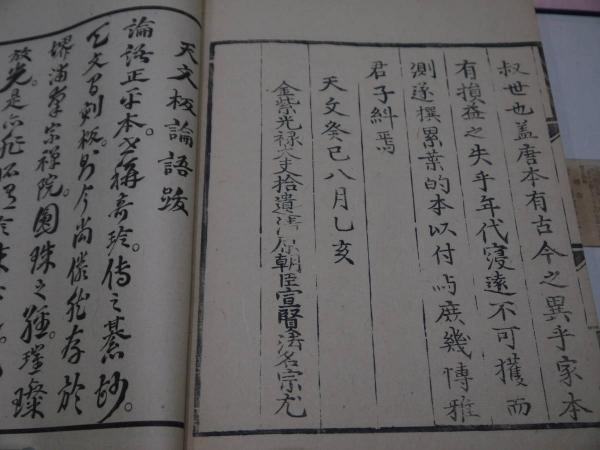 叔世也蓋唐本有古今之異乎家本
有損益之失乎年代寖遠不可獲而
測遂撰累葉的本以付与庶幾博雅
君子糾焉
天文癸巳八月乙亥
金紫光禄大夫拾遺清原朝臣宣賢法名宗尤
天文板論語跋
論語正平本。必稱奇珍。傳之甚尠。
天文白剡板。則今尚儼然存於
堺浦皐宗禅院。圓珠之種。璀璨
放光。是